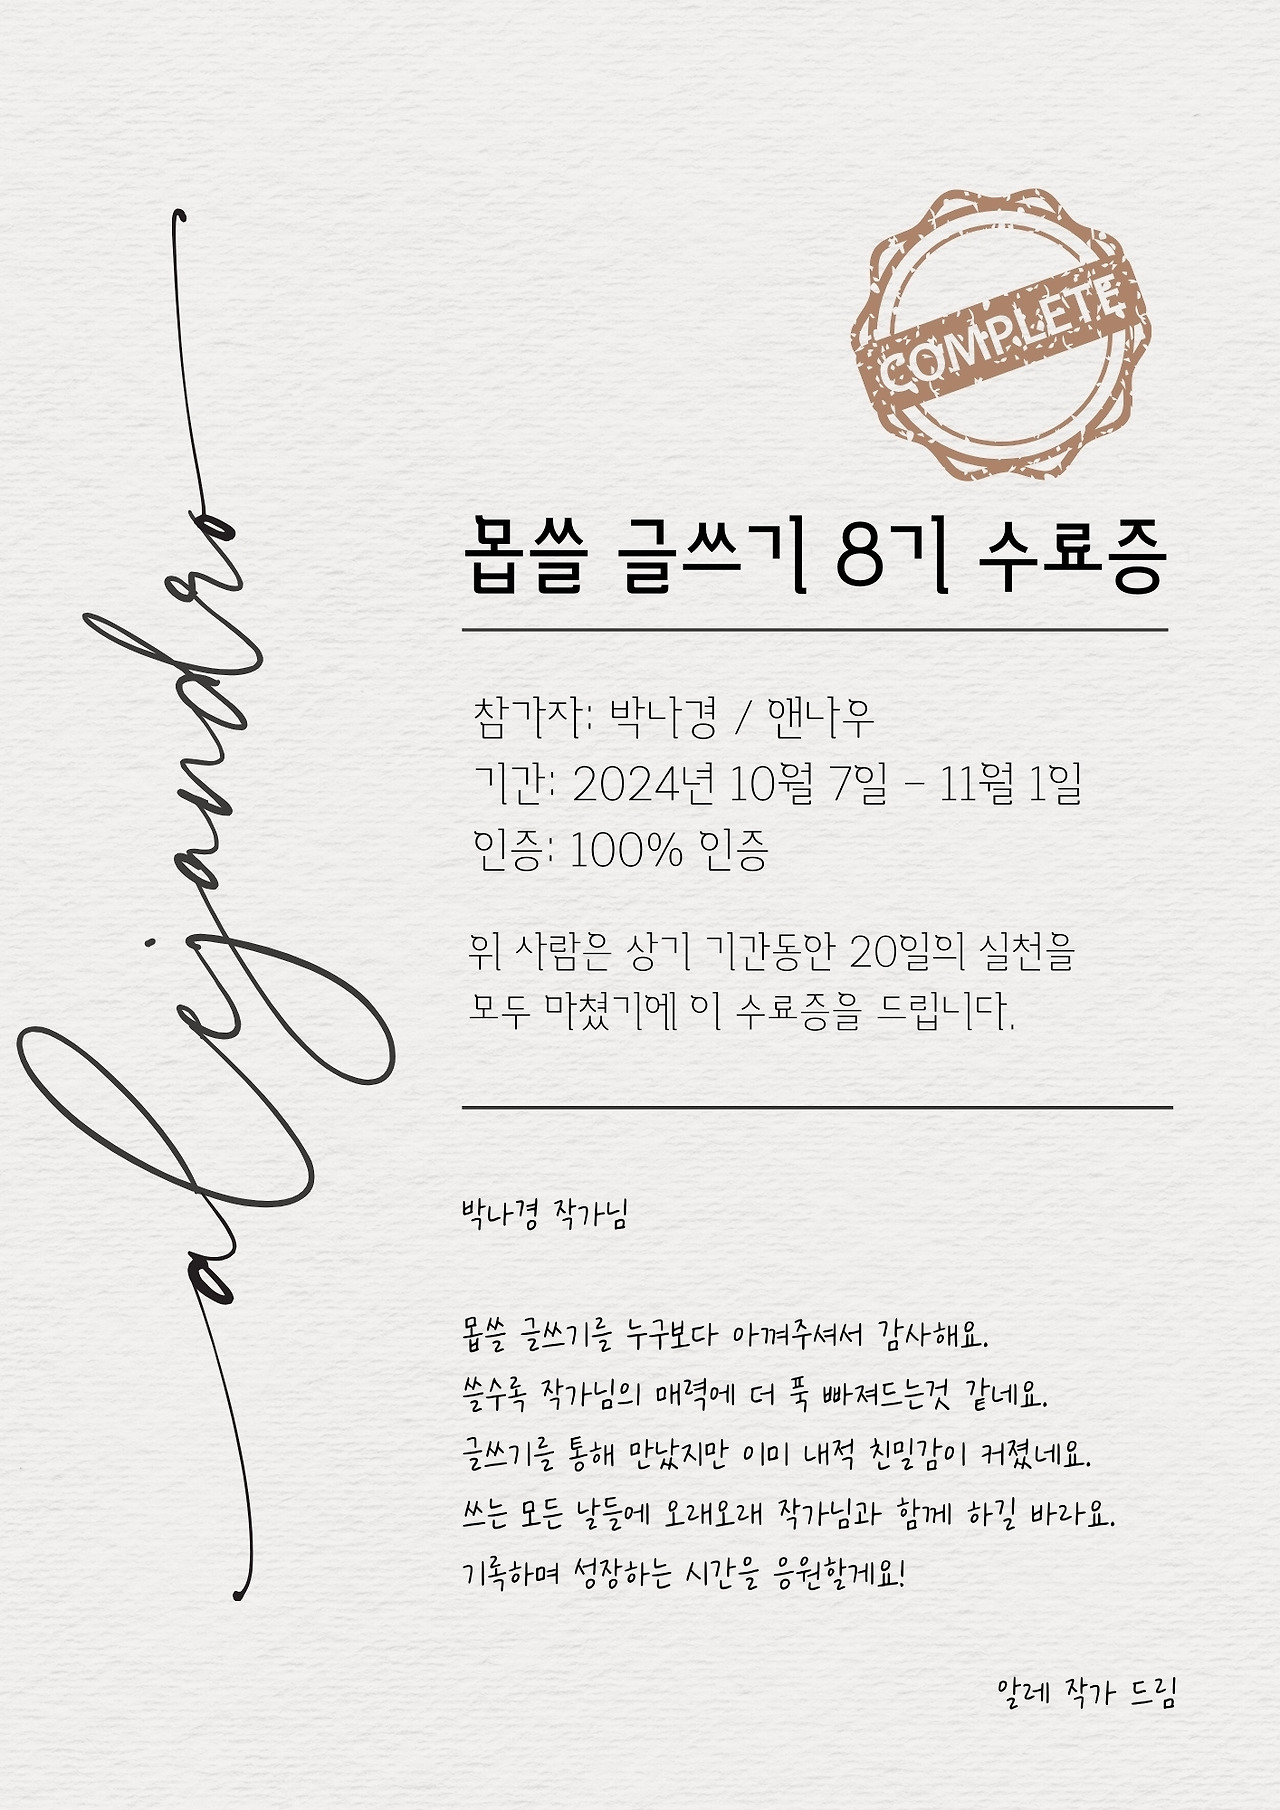 COMPLETE
alejandro
몹쓸 글쓰기 8기 수료증
참가자: 박나경 / 앤나우
기간: 2024년 10월 7일 - 11월 1일
인증: 100% 인증
위 사람은 상기 기간동안 20일의 실천을
모두 마쳤기에 이 수료증을 드립니다.
박나경 작가님
몹쓸 글쓰기를 누구보다 아껴주셔서 감사해요.
쓸수록 작가님의 매력에 더 푹 빠져드는것 같네요.
글쓰기를 통해 만났지만 이미 내적 친밀감이 커졌네요.
쓰는 모든 날들에 오래오래 작가님과 함께 하길 바라요.
기록하며 성장하는 시간을 응원할게요!
알레 작가 드림